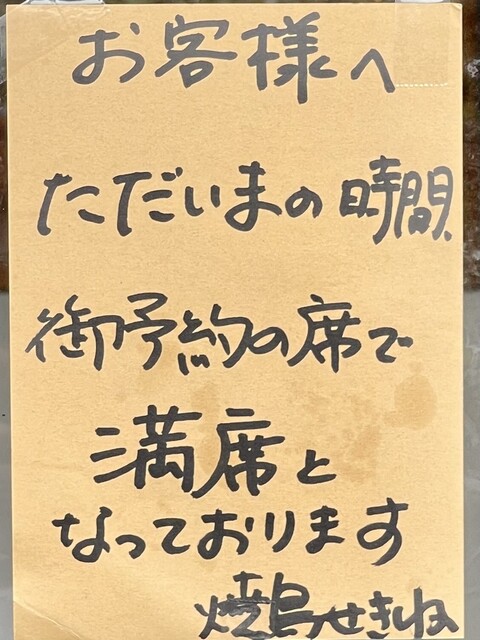 お客様へ
ただいまの時間、
御予約の席で
満席と
なっております
焼鳥せきしね